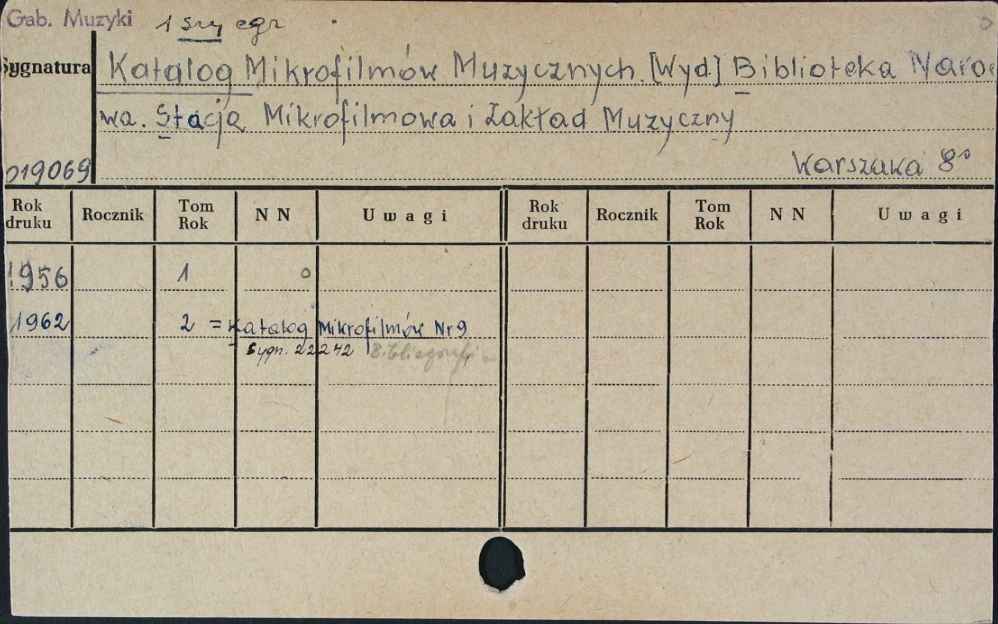 Gab. Muzyki 1 szy egz
Sygnatura Katalog Mikrofilmów Muzycznych. [Wyd.] Biblioteka Naro
wa. Stacja Mikrofilmowa i Zakład Muzyczny
019069 Warszawa 8°
Rok druku Rocznik Tom Rok N N Uwagi Rok druku Rocznik Tom Rok N N Uwagi
1956 1
1962 2 = Katalog Mikrofilmów Nr 9
Sygn. 22242